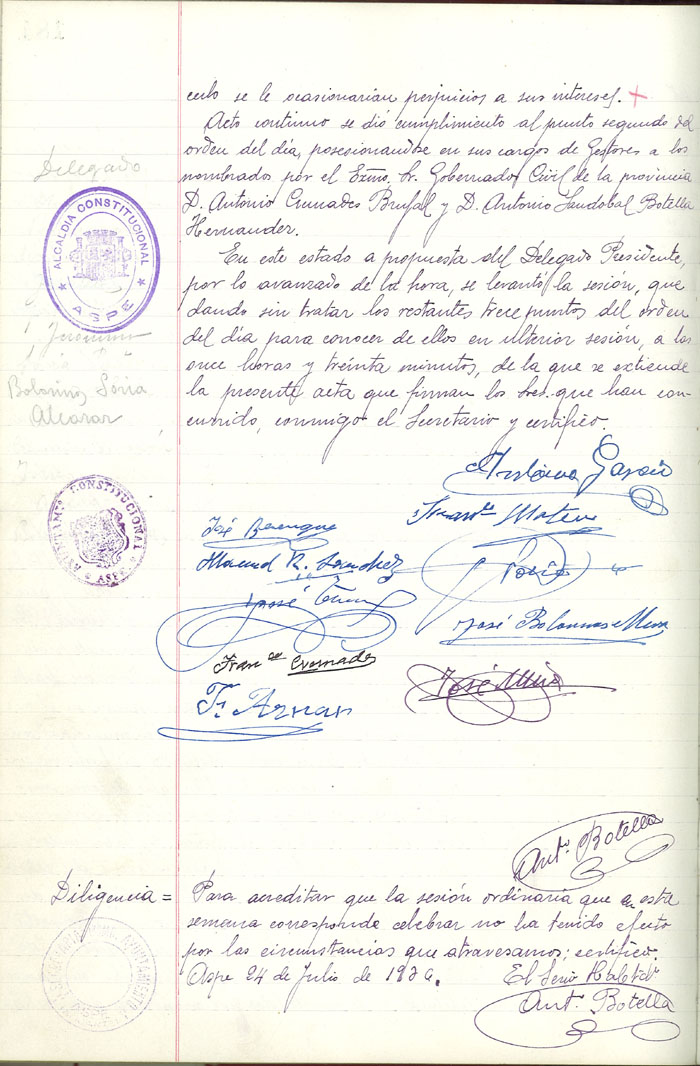 cerlo se le ocasionarían perjuicios a sus intereses. +
Acto continuo se dió cumplimiento al punto segundo del
orden del día, posesionandose en sus cargos de Gestores a los
nombrados por el Exmo. Sr. Gobernador Civil de la provincia
D. Antonio Cremades Brufal y D. Antonio Sandobal Botella
Hernander.
En este estado a propuesta del Delegado Presidente,
por lo avanzado de la hora, se levantó la sesión, que
dando sin tratar los restantes trece puntos del orden
del día para conocer de ellos en ulterior sesión, a las
once horas y treinta minutos, de la que se extiende
la presente acta que firman los Sres. que han con-
currido, conmigo el Secretario y certifico.
Delegado
ALCALDIA CONSTITUCIONAL
ASPE
Jeronimo
Bolarinos Soria
Alcaraz
AYUNTAMTO CONSTITUCIONAL
ASPE
García
José Berenguer
Franco Mateu
Manuel R. Sanchez
Soria
José
José Bolarinos Mira
Franco Cremades
José Mira
F. Aznar
Anto. Botella
Diligencia = Para acreditar que la sesión ordinaria que en esta
semana corresponde celebrar no ha tenido efecto
por las circunstancias que atravesamos; certifico.
Aspe 24 de Julio de 1936.
El Secrio
Anto. Botella
ASPE